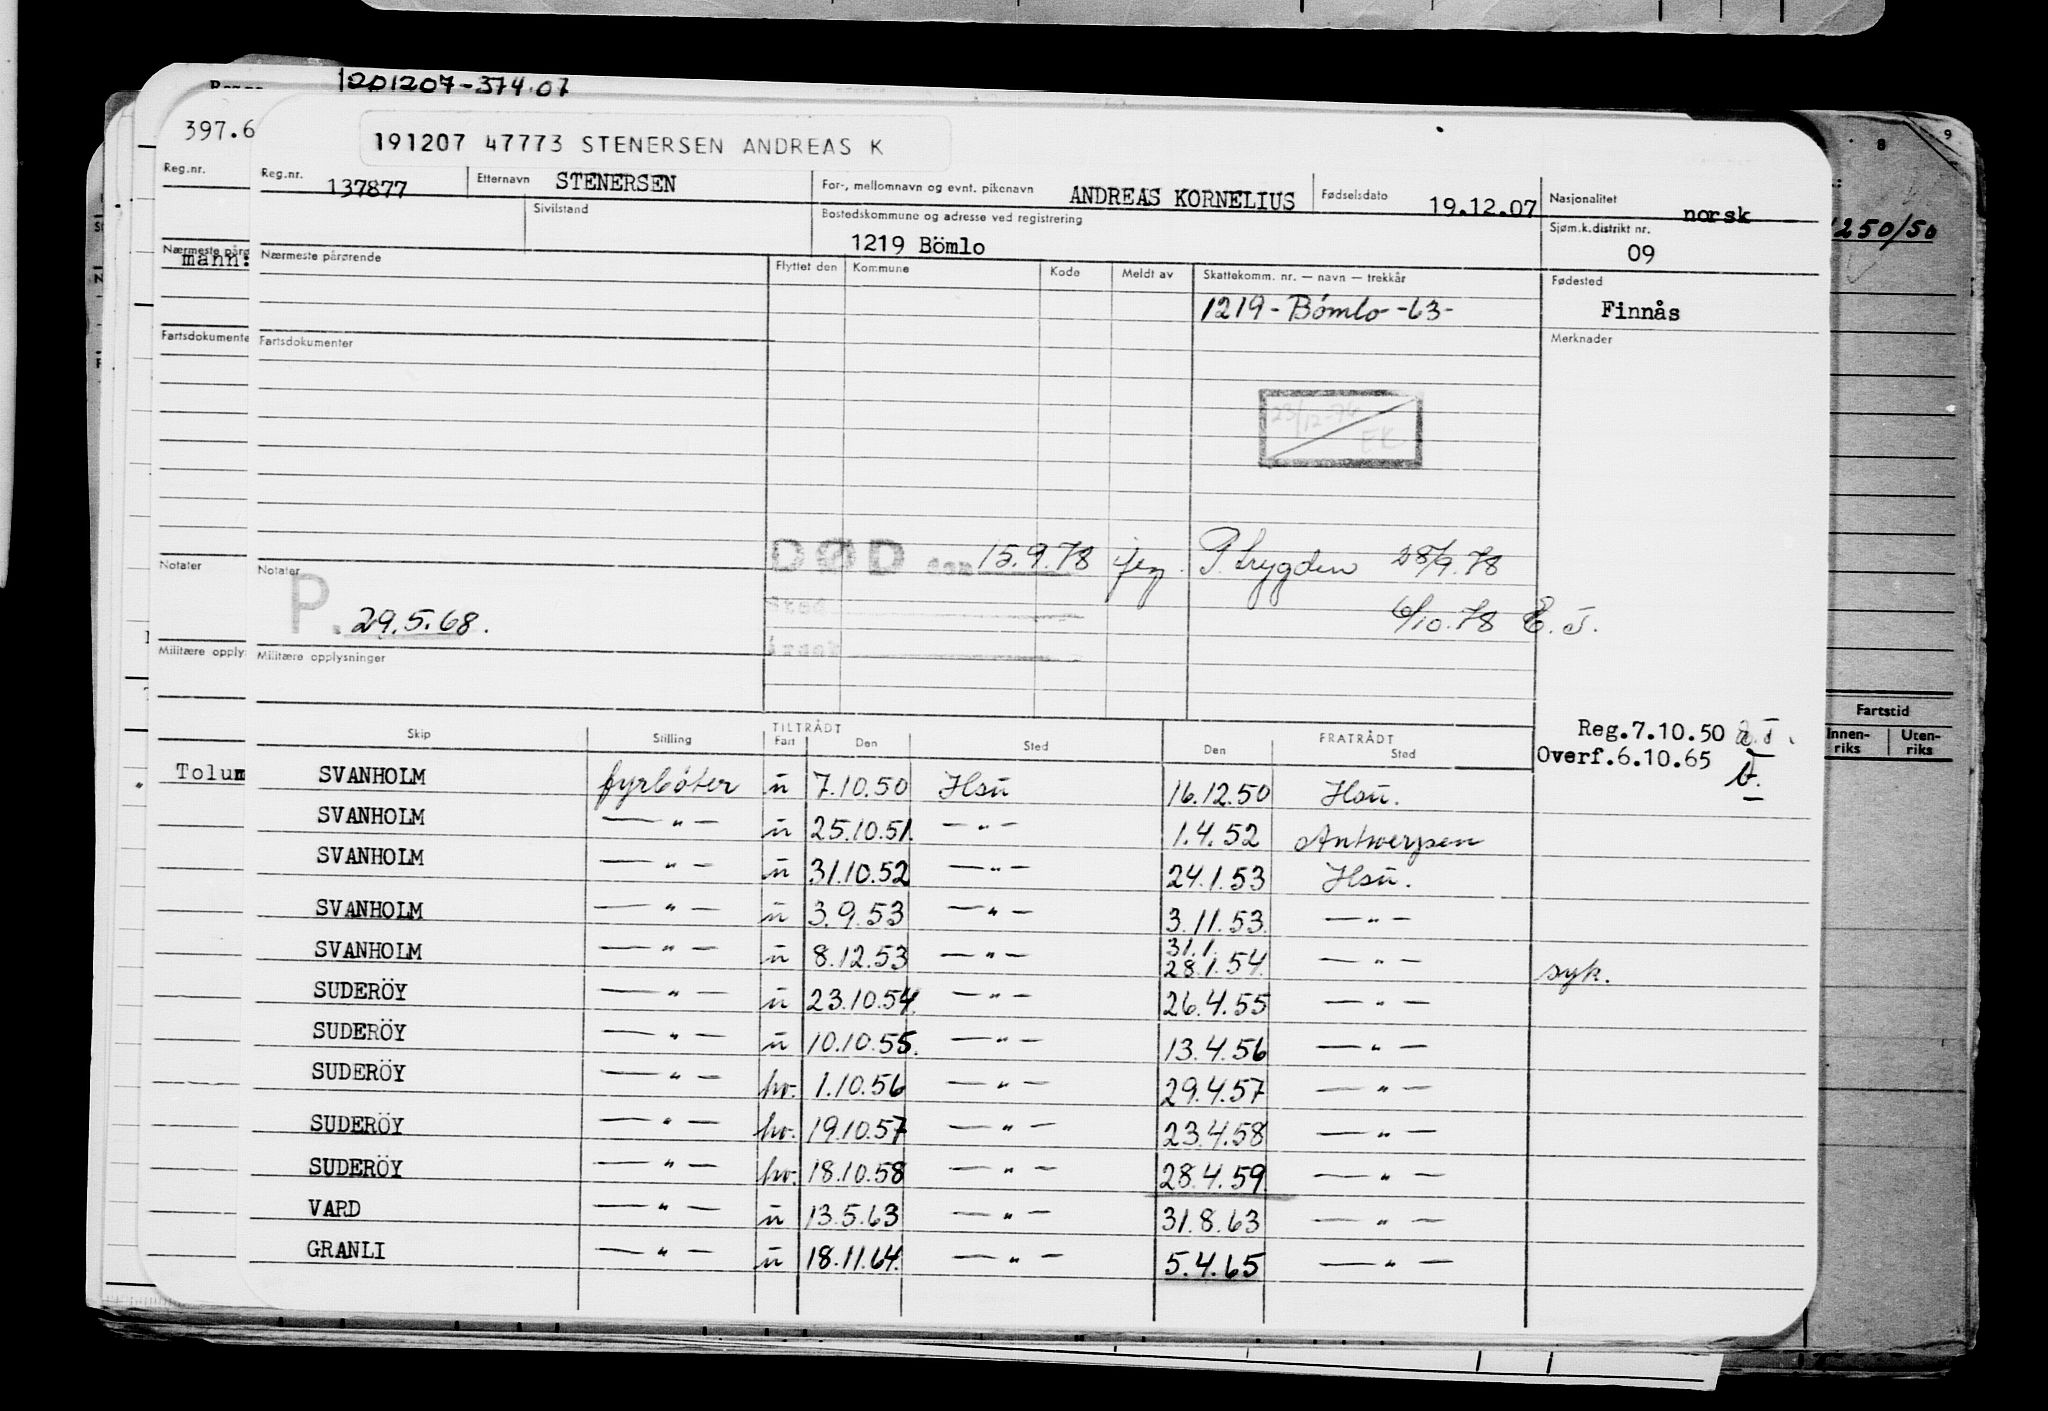 201207-374.07
397.6
191207 47773 STENERSEN ANDREAS K
9
8
Reg.nr.
Reg.nr. 137877 Etternavn STENERSEN For-, mellomnavn og evnt. pikenavn ANDREAS KORNELIUS Fødselsdato 19.12.07 Nasjonalitet norsk
Sivilstand Bostedskommune og adresse ved registrering 1219 Bömlo Sjøm.k.distrikt nr. 09
250/50
mann:
Nærmeste pårørende Flyttet den Kommune Kode Meldt av Skattekomm. nr. — navn — trekkår Fødested
1219 - Bömlo -63- Finnås
Fartsdokumente Fartsdokumenter Merknader
23/12-76
EK
DØD den 15.9.78 P. Trygden 28/9.78
Notater Notater
Sted
P. 29.5.68. 6/10.78 E.T.
Militære opply Militære opplysninger
Reg.7.10.50
Overf.6.10.65
Fartstid
Innen-riks Uten-riks
TILTRÅDT FRATRÅDT
Skip Stilling Fart Den Sted Den Sted
Tolum
SVANHOLM fyrböter u 7.10.50 Hsu 16.12.50 Hsu.
SVANHOLM — " — u 25.10.51. — " — 1.4.52 Antwerpen
SVANHOLM — " — u 31.10.52 — " — 24.1.53 Hsu.
SVANHOLM — " — u 3.9.53 — " — 3.11.53. — " —
SVANHOLM — " — u 8.12.53 — " — 31.1. 28.1.54. — " — syk.
SUDERÖY — " — u 23.10.54. — " — 26.4.55 — " —
SUDERÖY — " — u 10.10.55. — " — 13.4.56 — " —
SUDERÖY — " — hv. 1.10.56 — " — 29.4.57 — " —
SUDERÖY — " — hv. 19.10.57 — " — 23.4.58 — " —
SUDERÖY — " — hv. 18.10.58 — " — 28.4.59. — " —
VARD — " — u 13.5.63 — " — 31.8.63 — " —
GRANLI — " — u 18.11.64. — " — 5.4.65 — " —